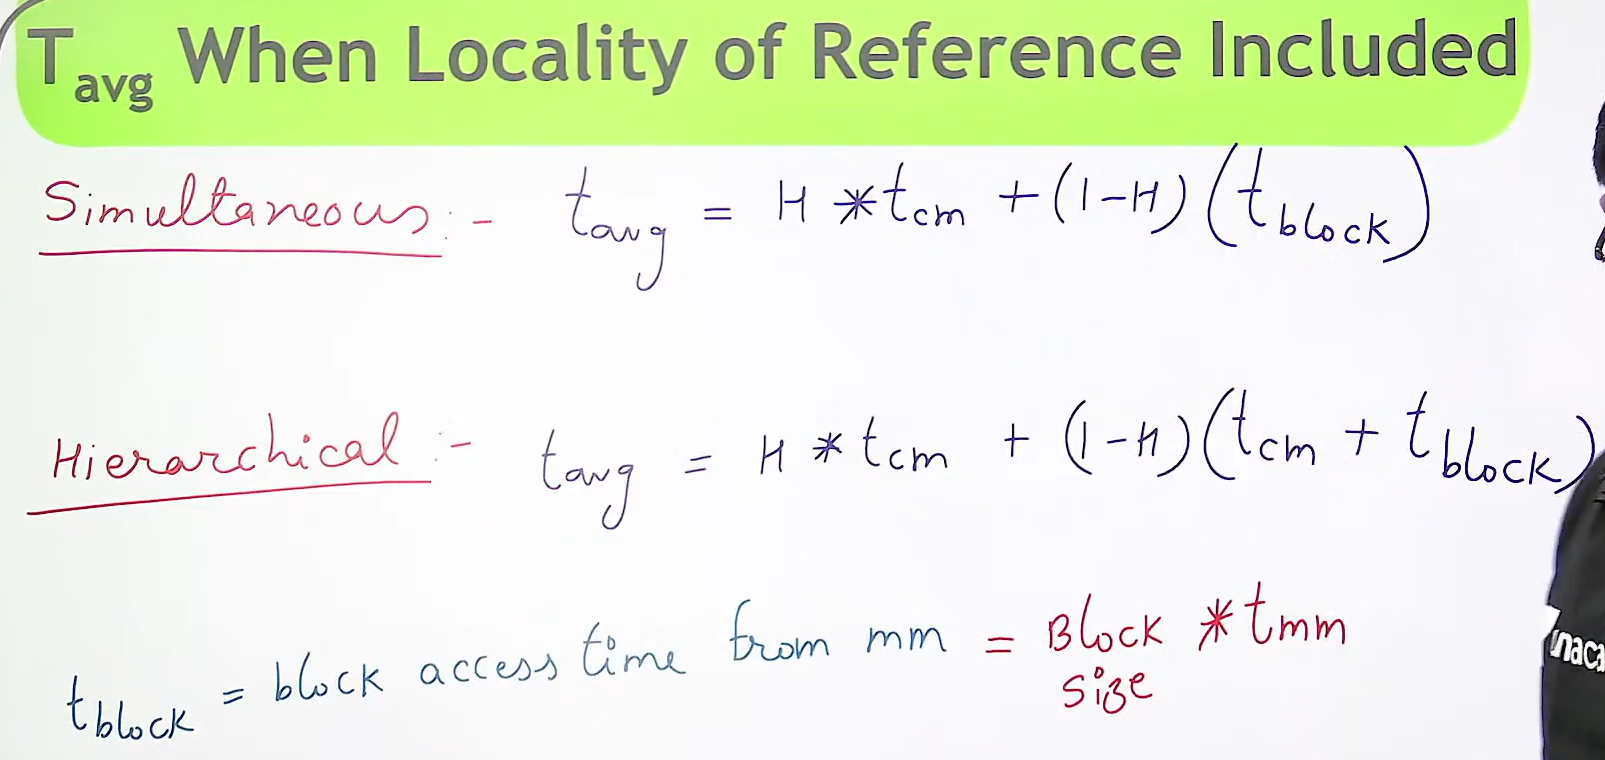 Tavg When Locality of Reference Included
Simultaneous :- tavg = H * tcm + (1-H) (tblock)
Hierarchical :- tavg = H * tcm + (1-H) (tcm + tblock)
tblock = block access time from mm = Block size * tmm